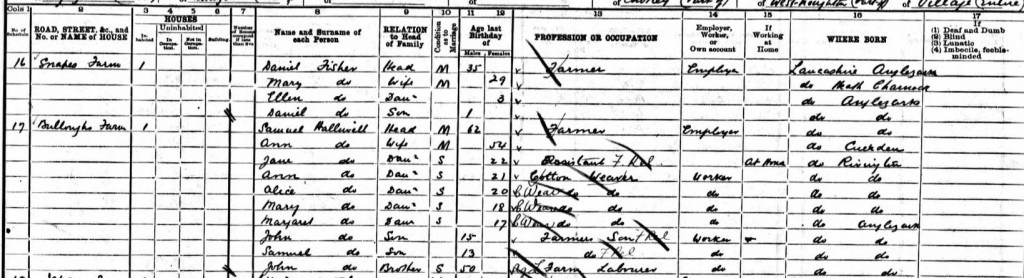 Cols 1 2 3 4 5 6 7 8 9 10 11 12 13 14 15 16 17
ROAD, STREET, &c., and No. or NAME of HOUSE HOUSES In-habited Uninhabited In Occupa-tion. Not in Occupa-tion. Building Name and Surname of each Person RELATION to Head of Family Condition as to Marriage Age last Birthday of Males Females PROFESSION OR OCCUPATION Employer, Worker, or Own account If Working at Home WHERE BORN If (1) Deaf and Dumb (2) Blind (3) Lunatic (4) Imbecile, feeble-minded
16 Snapes Farm 1 Daniel Fisher Head M 35 Farmer Employer Lancashire Anglezark
Mary do Wife M 29 do Heath Charnock
Ellen do Dau 3 do Anglezark
Daniel do Son 1 do do
17 Bulloughs Farm 1 Samuel Halliwell Head M 62 Farmer Employer do do
Ann do Wife M 54 do Cuerden
Jane do Dau S 22 Assistant F Rel At Home do Rivington
Ann do Dau S 21 Cotton Weaver Worker do do
Alice do Dau S 20 C Weav do do do do do
Mary do Dau S 18 C Weav do do do do do
Margaret do Daur S 17 C Weav do do do do Anglezark
John do Son 15 Farmers Son F Rel Worker do do
Samuel do Son 13 do F Rel do do
John do Brother S 50 Farm Labourer do do do